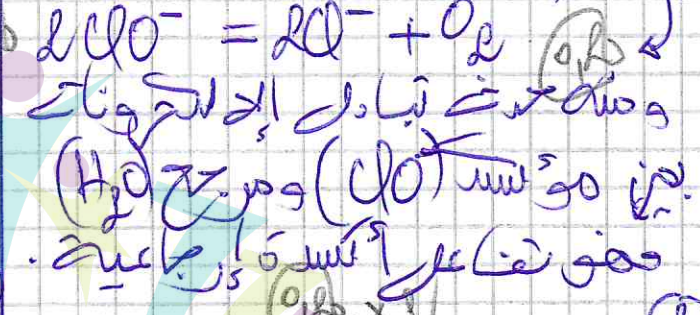 2ClO⁻ = 2Cl⁻ + O₂ 0,25
ومنه حدث تبادل الإلكترونات
بين مؤكسد (ClO⁻) ومرجع (H₂O)
فهو تفاعل أكسدة إرجاعية.